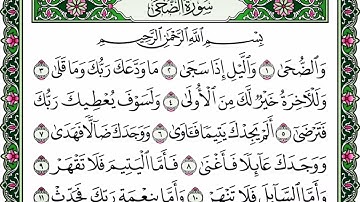 سورة الضحى
بسم الله الرحمن الرحيم
وَالضُّحَىٰ ١ وَاللَّيْلِ إِذَا سَجَىٰ ٢ مَا وَدَّعَكَ رَبُّكَ وَمَا قَلَىٰ ٣
وَلَلْآخِرَةُ خَيْرٌ لَّكَ مِنَ الْأُولَىٰ ٤ وَلَسَوْفَ يُعْطِيكَ رَبُّكَ
فَتَرْضَىٰ ٥ أَلَمْ يَجِدْكَ يَتِيمًا فَآوَىٰ ٦ وَوَجَدَكَ ضَالًّا فَهَدَىٰ ٧
وَوَجَدَكَ عَائِلًا فَأَغْنَىٰ ٨ فَأَمَّا الْيَتِيمَ فَلَا تَقْهَرْ ٩
وَأَمَّا السَّائِلَ فَلَا تَنْهَرْ ١٠ وَأَمَّا بِنِعْمَةِ رَبِّكَ فَحَدِّثْ ١١